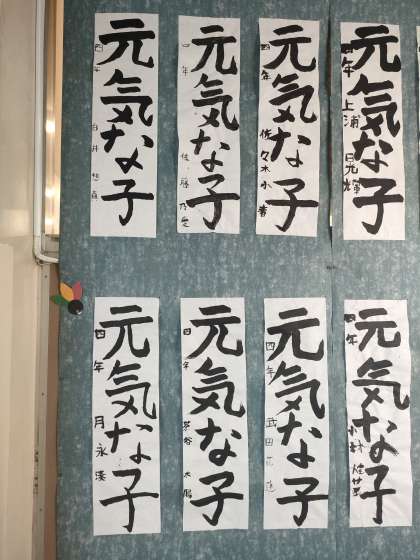 元気な子
四年 上浦 晃輝
元気な子
四年 佐々木小春
元気な子
四年 佐藤乃愛
元気な子
四年
元気な子
四年
元気な子
四年 武田
元気な子
四年 大陽
元気な子
四年 月永湊